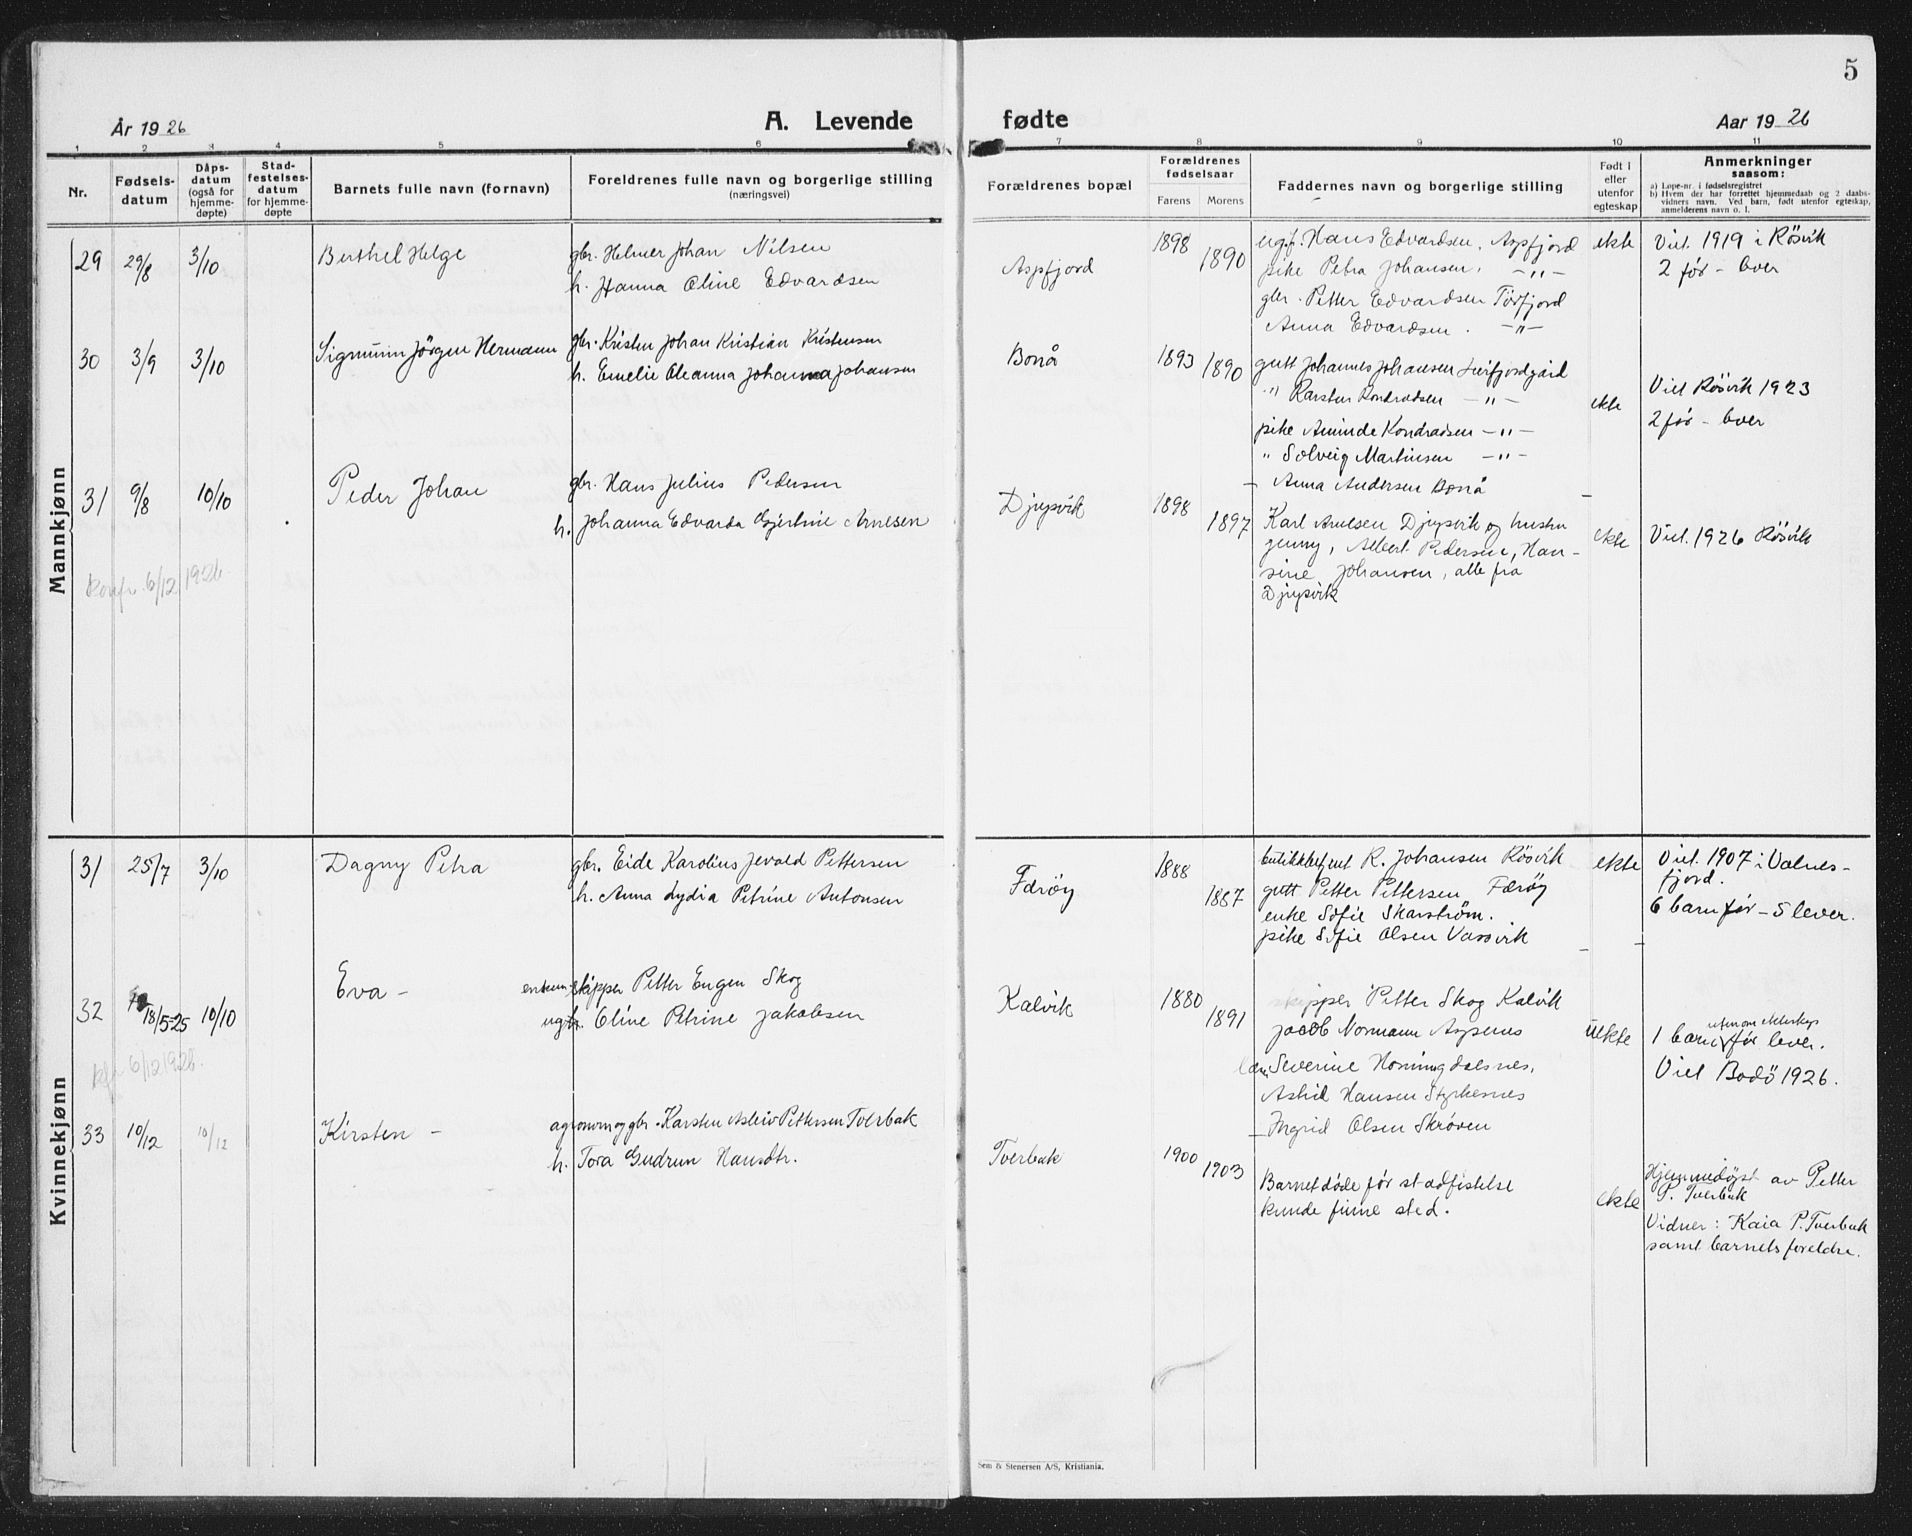 År 1926
A. Levende
1 2 3 4 5 6
Nr.
Fødsels-
datum
Dåps-
datum
(også for
hjemme-
døpte)
Stad-
festelses-
datum
for hjemme-
døpte
Barnets fulle navn (fornavn)
Foreldrenes fulle navn og borgerlige stilling
(næringsvei)
Mannkjønn
29 29/8 3/10 Berthel Helge gbr. Helmer Johan Nilsen
h. Hanna Oline Edvardsen
30 3/9 3/10 Sigmunn Jörgen Hermann gbr. Kristen Johan Kristian Kristensen
h. Emelie Oleanna Johanna Johansen
31 9/8 10/10 Peder Johan gbr. Hans Julius Pedersen
h. Johanna Edvarda Gjertine Arnesen
Konfr. 6/12 1926.
Kvinnekjønn
31 25/7 3/10 Dagny Petra gbr. Eide Karolius Jevald Pettersen
h. Anna Lydia Petrine Antonsen
32 18/5-25 10/10 Eva – enkem. skipper Petter Eugen Skog
ugf. Oline Petrine Jakobsen
kfr 6/12 1926.
33 10/12 10/12 Kirsten – agronom og gbr. Karsten Asleiv Pettersen Tverbak
h. Tora Gudrun Hansdtr.
5
fødte
Aar 1926
7 8 9 10 11
Forældrenes bopæl
Forældrenes
fødselsaar
Farens Morens
Faddernes navn og borgerlige stilling
Født i
eller
utenfor
egteskap
Anmerkninger
saasom:
a) Løpe-nr. i fødselsregistret
b) Hvem der har forrettet hjemmedaab og 2 daabs-
vidners navn. Ved barn, født utenfor egteskap,
anmelderens navn o. l.
Aspfjord 1898 1890 ug.f. Hans Edvardsen, Aspfjord ekte Viet. 1919 i Rösvik
pike Petra Johansen, –"– 2 før – lever
gbr. Petter Edvardsen Törfjord
Anna Edvardsen. –"–
Bonå 1893 1890 gutt Johannes Johansen Leirfjordgård ekte Viet Rösvik 1923
" Karsten Kondradsen –"– 2 før – lever
pike Aminde Kondradsen –"–
" Solveig Martinsen –"–
Anna Andersen Bonå
Djupvik 1898 1897 Karl Arnesen Djupvik og hustru ekte Viet. 1926 Rösvik
Jenny, Albert Pedersen, Han-
sine Johansen, alle fra
Djupvik
Færöy 1888 1887 butikkbetjent R. Johansen Rösvik ekte Viet. 1907 i Valnes-
fjord.
gutt Petter Pettersen Færöy 6 barn før – 5 lever.
enke Sofie Skarström.
pike Sofie Olsen Vassvik
Kalvik 1880 1891 skipper Petter Skog Kalvik uekte
Jacob Normann Aspenes 1 barn utenom ekteskap før lever.
Severine Horningdalsnes, Viet Bodö 1926.
Astrid Hansen Styrkesnes
Ingrid Olsen Skröven
Tverbak 1900 1903 Barnet døde før stadfestelse ekte Hjemmedöpt av Petter
kunde finne sted. P. Tverbak
Vidner: Kaia P. Tverbak
samt barnets foreldre.
Sem & Stenersen A/S, Kristiania.